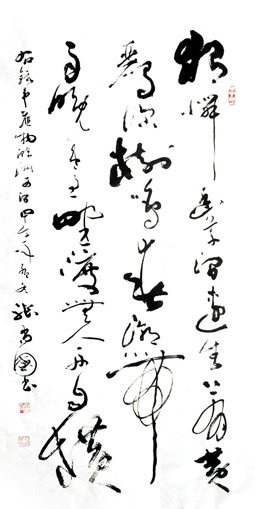 獨憐幽草澗邊生上有黃
鸝深樹鳴春潮帶
雨晚來急野渡無人舟自橫
右錄韋應物滁州西澗 國書